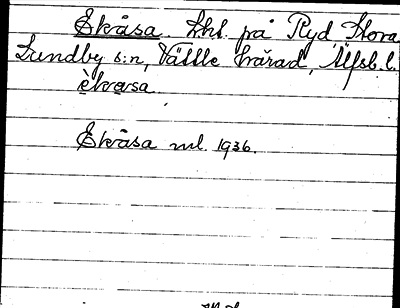 Ekåsa. Lht. på Ryd Stora
Lundby s:n, Vättle härad, Älfsb. l.
èkåsa.
Ekåsa ml. 1936.